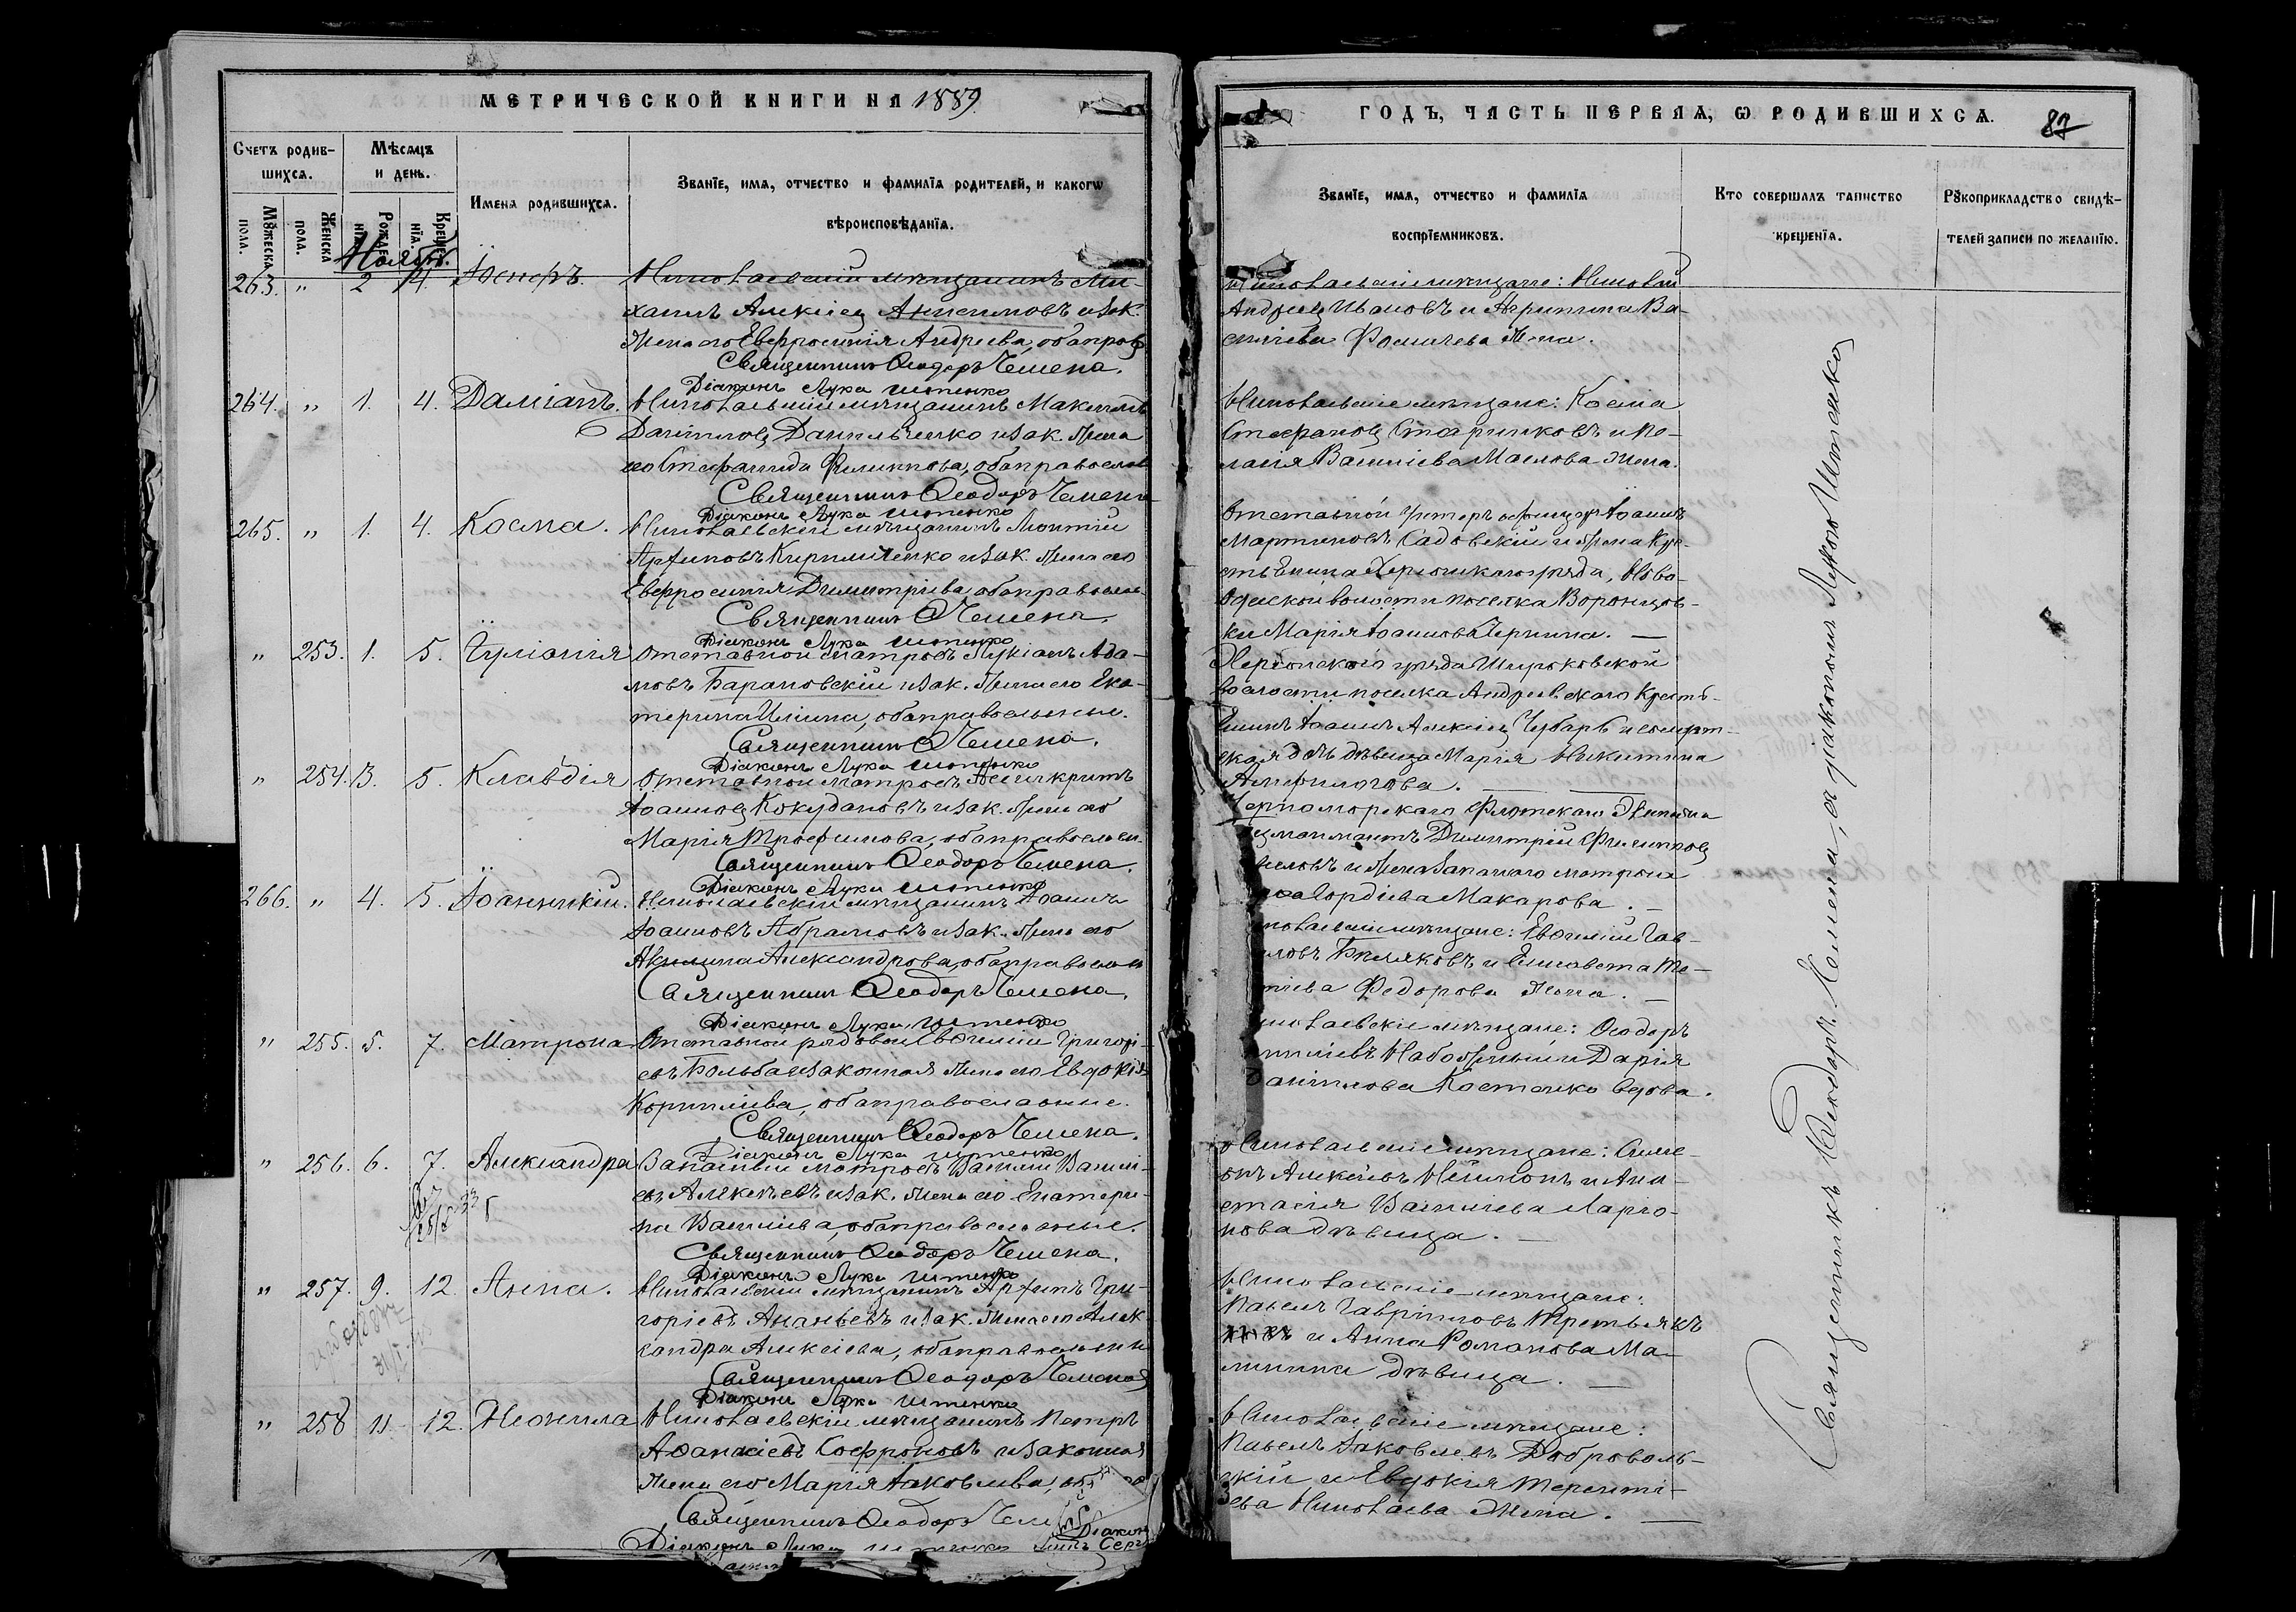 МЕТРИЧЕСКОЙ КНИГИ НА 1889.
Счетъ родив-
шихсѧ.
Мѣсѧцъ
и день.
Мꙋжеска пола.
Женска пола.
Рожденїѧ.
Крещенїѧ.
Имена родившихсѧ.
Званїе, имѧ, отчество и фамилїѧ родителей, и какогѡ
вѣроисповѣданїѧ.
Ноябрь.
263. " 2 4. Іосифъ.
Николаевскій мѣщанинъ Ми-
хаилъ Алексіевъ Анисимовъ и зак.
жена его Евфросинія Андреева, оба прав.
Священникъ Ѳеодоръ Чемена.
Діаконъ Лука Иотенко
264. " 1. 4. Даміанъ.
Николаевскій мѣщанинъ Максимъ
Даніиловъ Данильченко и зак. жена
его Стефанида Филиппова, оба православ
Священникъ Ѳеодоръ Чемена
Діаконъ Лука Иотенко
265. " 1. 4. Косма.
Николаевскій мѣщанинъ Леонтій
Кириличенко и зак. жена его
Евфросинія Димитріева, оба православн.
Священникъ Ѳ Чемена.
Діаконъ Лука Иотенко
" 253. 1. 5. Іуліанія
Отставной матросъ Лукіанъ Ада-
мовъ Барановскій и зак. жена его Ека-
терина Иліина, оба православные.
Священникъ Ѳ Чемена.
Діаконъ Лука Иотенко
" 254. 3. 5. Клавдія
Отставной матросъ Асинкритъ
Іоанновъ Кокудановъ и зак. жена его
Марія Трофимова, оба православн.
Священникъ Ѳеодоръ Чемена.
Діаконъ Лука Иотенко
266. " 4. 5. Іоанникій.
Николаевскій мѣщанинъ Іоаннъ
Іоанновъ Абрамовъ и зак. жена его
Акилина Александрова, оба православн
Священникъ Ѳеодоръ Чемена.
Діаконъ Лука Иотенко
" 255. 5. 7. Матрона
Отставной рядовой Евѳимій Григорі-
евъ Больба и законная жена его Евдокія
Корниліева, оба православные.
Священникъ Ѳеодоръ Чемена.
Діаконъ Лука Иотенко
" 256. 6. 7. Александра
Запасный матросъ Василій Васили-
евъ Алексѣевъ и зак. жена его Екатери-
на Василіева, оба православные.
Священникъ Ѳеодоръ Чемена.
Діаконъ Лука Иотенко
" 257. 9. 12. Анна.
Николаевскій мѣщанинъ Гри-
горіевъ Ананьевъ и зак. жена его Алек-
сандра Алексіева, оба православн
Священникъ Ѳеодоръ Чемена
Діаконъ Лука Иотенко
" 258 11 12. Неонила
Николаевскій мѣщанинъ Петръ
Аѳанасіевъ Софроновъ и законная
жена его Марія Іаковлева, об
Священникъ Ѳеодоръ Чем
Діаконъ Лука
ГОДЪ, ЧАСТЬ ПЕРВАѦ, Ѡ РОДИВШИХСѦ.
87
Званїе, имѧ, отчество и фамилїѧ
воспрїемниковъ.
Кто совершалъ таинство
крещенїѧ.
Рꙋкоприкладство свидѣ-
телей записи по желанїю.
Николаевскіе мѣщане: Николай
Андреевъ Ивановъ и Агрипина Ва-
силіева Фомичева жена.
Николаевскіе мѣщане: Косма
Стефановъ Стариковъ и Пе-
лагія Василіева Маслова жена.
Отставной унтеръ офицеръ Іоаннъ
Мартиновъ Садовскій и жена кре-
стьянина Херсонскаго уѣзда, Ново-
Одесской волости поселка Воронцов-
ки Марія Іоаннова Чернина. —
Херсонскаго уѣзда Широковской
волости поселка Андреевскаго крест-
янинъ Іоаннъ Алексіевъ Чубарь и
дочь дѣвица Марія Никитина
Амфилогова. —
Черноморскаго Флотскаго Экипажа
Димитрій Филипповъ
и жена запаснаго матроса
Гордіева Макарова. —
николаевскіе мѣщане: Евѳимій Гав-
Бѣляковъ и Елисавета Те-
Федорова жена. —
николаевскіе мѣщане: Ѳеодоръ
Набожный и Дарія
Даніилова Костенко вдова.
Николаевскіе мѣщане: Симе-
онъ Алексѣевъ и Ана-
стасія Василіева Ларіо-
нова дѣвица. —
Николаевскіе мѣщане:
Павелъ Гавріиловъ Третьякъ
и Анна Романова Ма-
линина дѣвица. —
Николаевскіе мѣщане:
Павелъ Іаковлевъ Доброволь-
скій и Евдокія Теренті-
ева Николаева жена. —
Священникъ Ѳеодоръ Чемена, съ діакономъ Лукою Иотенко